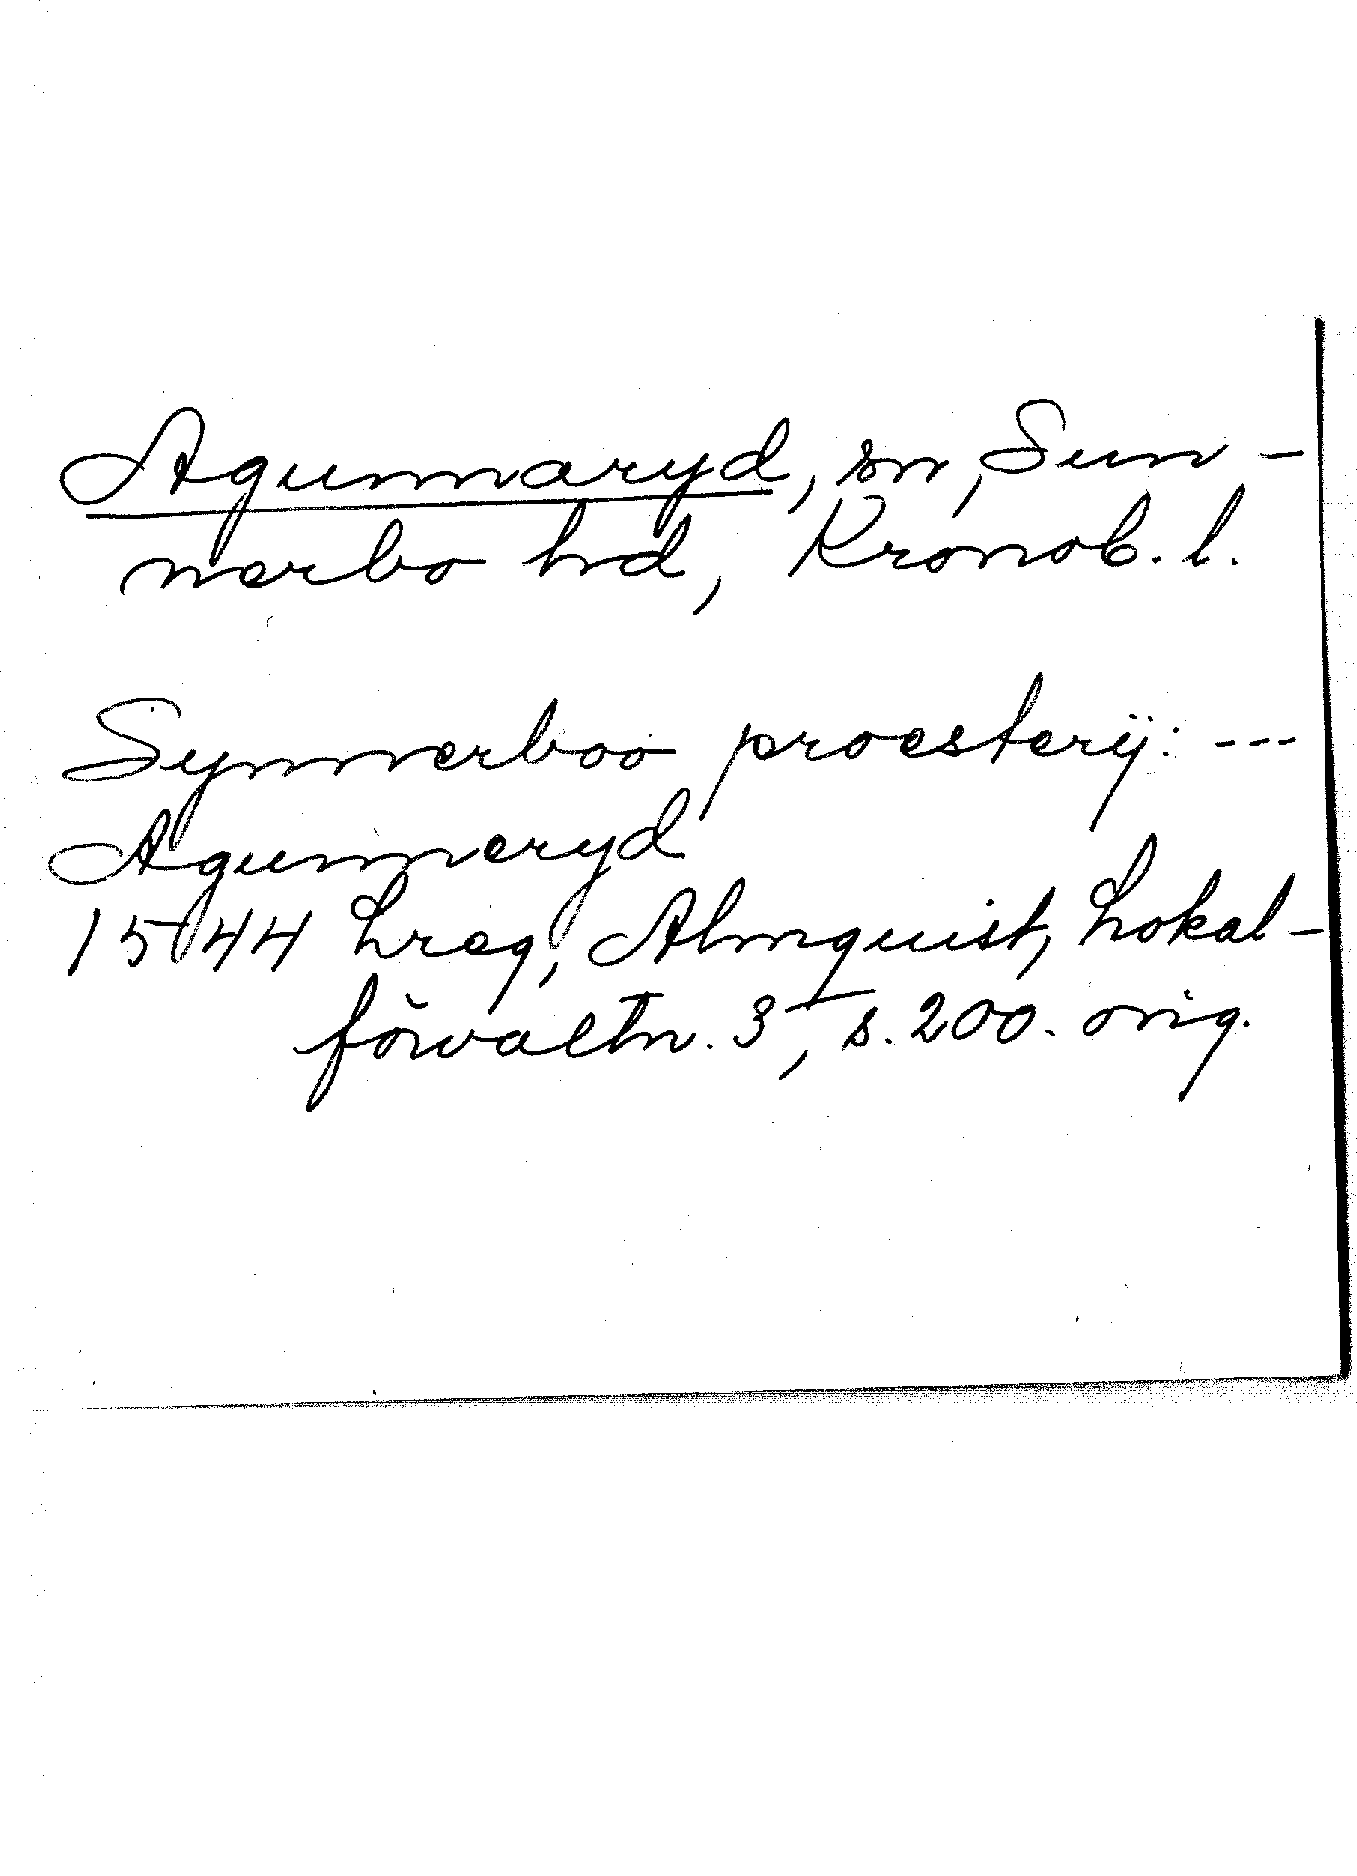 Agunnaryd, sn, Sun-
nerbo hd, Kronob. l.
Synnerboo proesterÿ: ---
Agunneryd
1544 Lreg, Almquist, Lokal-
förvaltn. 3, s. 200. orig.